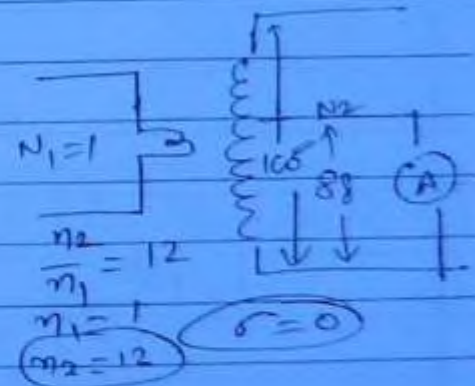 N₁ = 1
N2
100
88
A
n2/n1 = 12
n1 = 1
n2 = 12
σ = 0